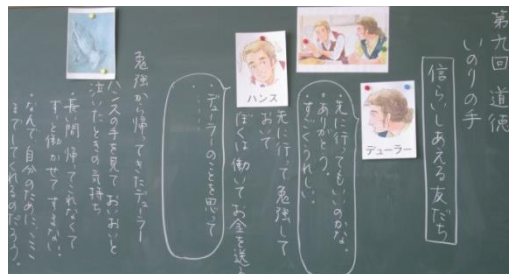 第九回 道徳
いのりの手
信らいしあえる友だち
デューラー
・先に行ってもいいのかな。
・ありがとう。
・すごくうれしい。
ハンス
先に行って勉強して
おいで
ぼくは働いてお金を送
・デューラーのことを思って
勉強から帰ってきたデューラー
ハンスの手を見ておいおいと
泣いたときの気持ち
・長い間帰ってこれなくて
ずっと働かせてすまない。
・なんで、自分のために、ここ
までしてくれるのだろう。